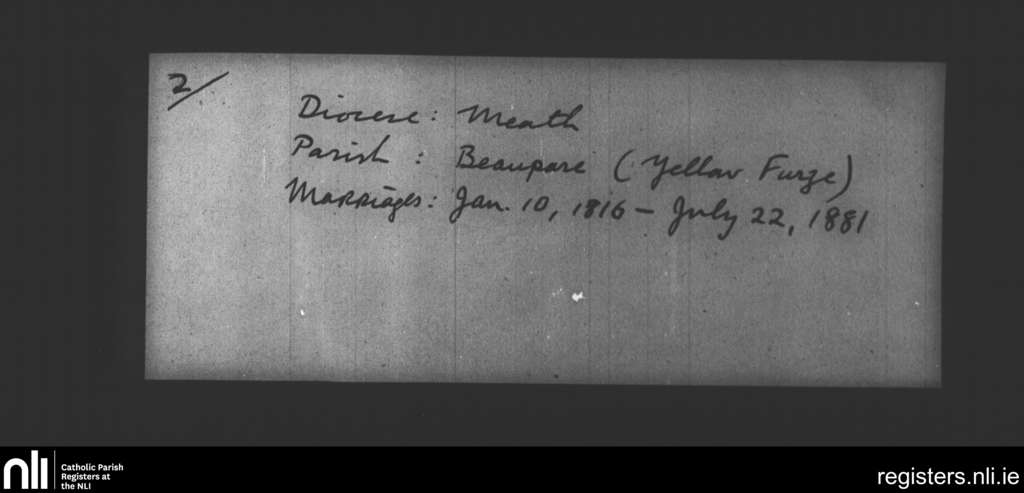 2/
Diocese: Meath
Parish: Beaupare (Yellow Furze)
Marriages: Jan. 10, 1816 – July 22, 1881
nli
Catholic Parish
Registers at
the NLI
registers.nli.ie